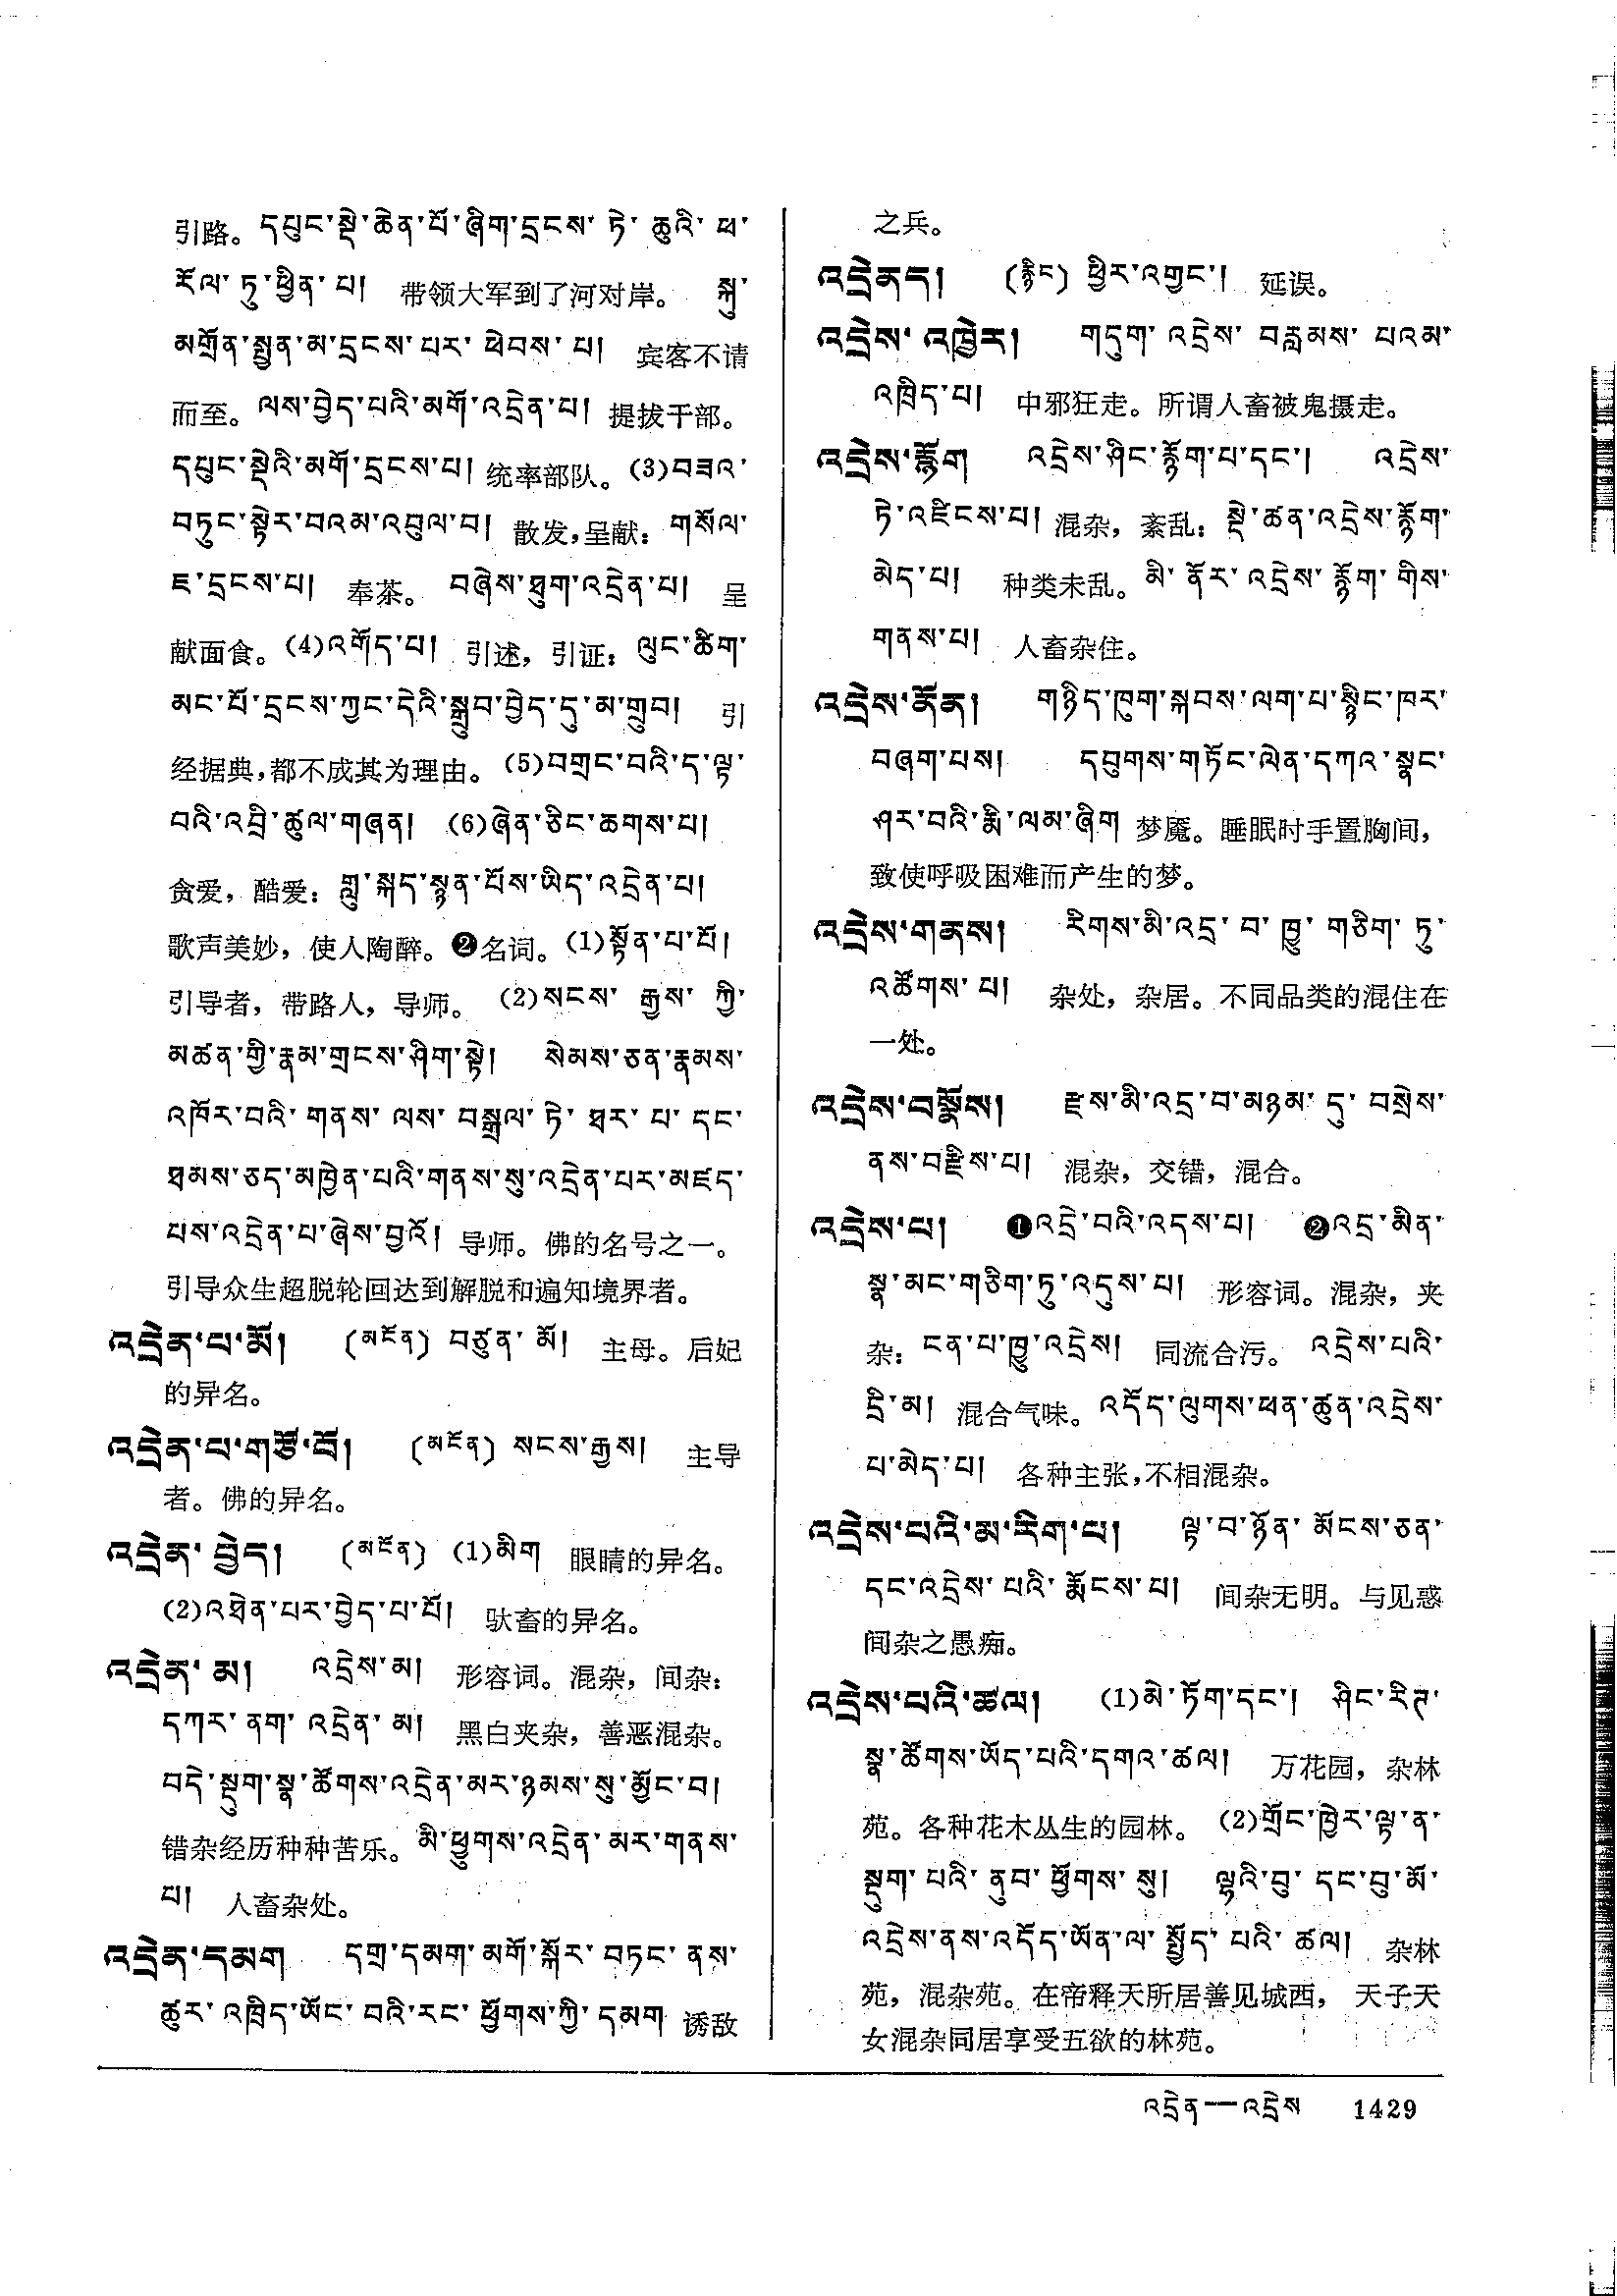 引路。དཔུང་སྡེ་ཆེན་པོ་ཞིག་དྲངས་ཏེ་ཆུའི་ཕ་
རོལ་ཏུ་ཕྱིན་པ། 带领大军到了河对岸。 སྐུ་
མགྲོན་སྤྱན་མ་དྲངས་པར་ཕེབས་པ། 宾客不请
而至。ལས་བྱེད་པའི་མགོ་འདྲེན་པ། 提拔干部。
དཔུང་སྡེའི་མགོ་དྲངས་པ། 统率部队。(3)བཟའ་
བཏུང་སྟེར་བའམ་འབུལ་བ། 散发,呈献：གསོལ་
ཇ་དྲངས་པ། 奉茶。 བཞེས་ཐུག་འདྲེན་པ། 呈
献面食。(4)འགོད་པ། 引述，引证：ལུང་ཚིག་
མང་པོ་དྲངས་ཀྱང་དེའི་སྒྲུབ་བྱེད་དུ་མ་གྲུབ། 引
经据典,都不成其为理由。(5)བགྲང་བའི་ད་ལྟ་
བའི་འབྲི་ཚུལ་གཞན། (6)ཞེན་ཅིང་ཆགས་པ།
贪爱，酷爱：གླུ་སྐད་སྙན་པོས་ཡིད་འདྲེན་པ།
歌声美妙，使人陶醉。❷名词。(1)སྟོན་པ་པོ།
引导者，带路人，导师。 (2)སངས་རྒྱས་ཀྱི་
མཚན་གྱི་རྣམ་གྲངས་ཤིག་སྟེ། སེམས་ཅན་རྣམས་
འཁོར་བའི་གནས་ལས་བསྒྲལ་ཏེ་ཐར་པ་དང་
ཐམས་ཅད་མཁྱེན་པའི་གནས་སུ་འདྲེན་པར་མཛད་
པས་འདྲེན་པ་ཞེས་བྱའོ། 导师。佛的名号之一。
引导众生超脱轮回达到解脱和遍知境界者。
འདྲེན་པ་མོ། (མངོན) བཙུན་མོ། 主母。后妃
的异名。
འདྲེན་པ་གཙོ་བོ། (མངོན) སངས་རྒྱས། 主导
者。佛的异名。
འདྲེན་བྱེད། (མངོན) (1)མིག 眼睛的异名。
(2)འཐེན་པར་བྱེད་པ་པོ། 驮畜的异名。
འདྲེན་མ། འདྲེས་མ། 形容词。混杂，间杂：
དཀར་ནག་འདྲེན་མ། 黑白夹杂，善恶混杂。
བདེ་སྡུག་སྣ་ཚོགས་འདྲེན་མར་ཉམས་སུ་མྱོང་བ།
错杂经历种种苦乐。མི་ཕྱུགས་འདྲེན་མར་གནས་
པ། 人畜杂处。
འདྲེན་དམག དགྲ་དམག་མགོ་སྐོར་བཏང་ནས་
ཚུར་འཁྲིད་ཡོང་བའི་རང་ཕྱོགས་ཀྱི་དམག 诱敌
之兵。
འདྲེནད། (རྙིང) ཕྱིར་འགྱང་། 延误。
འདྲེས་འཁྱེར། གདུག་འདྲེས་བརླམས་པའམ་
འཁྲིད་པ། 中邪狂走。所谓人畜被鬼摄走。
འདྲེས་རྙོག འདྲེས་ཤིང་རྙོག་པ་དང་། འདྲེས་
ཏེ་འཛིངས་པ། 混杂，紊乱：སྡེ་ཚན་འདྲེས་རྙོག་
མེད་པ། 种类未乱。མི་ནོར་འདྲེས་རྙོག་གིས་
གནས་པ། 人畜杂住。
འདྲེས་ནོན། གཉིད་ཁུག་སྐབས་ལག་པ་སྙིང་ཁར་
བཞག་པས། དབུགས་གཏོང་ལེན་དཀའ་སྣང་
ཤར་བའི་རྨི་ལམ་ཞིག 梦魇。睡眠时手置胸间，
致使呼吸困难而产生的梦。
འདྲེས་གནས། རིགས་མི་འདྲ་བ་ཁྱུ་གཅིག་ཏུ་
འཚོགས་པ། 杂处，杂居。不同品类的混住在
一处。
འདྲེས་བསྣོས། རྫས་མི་འདྲ་བ་མཉམ་དུ་བསྲེས་
ནས་བརྫིས་པ། 混杂，交错，混合。
འདྲེས་པ། ❶འདྲེ་བའི་འདས་པ། ❷འདྲ་མིན་
སྣ་མང་གཅིག་ཏུ་འདུས་པ། 形容词。混杂，夹
杂：ངན་པ་ཁྱུ་འདྲེས། 同流合污。 འདྲེས་པའི་
དྲི་མ། 混合气味。འདོད་ལུགས་ཕན་ཚུན་འདྲེས་
པ་མེད་པ། 各种主张,不相混杂。
འདྲེས་པའི་མ་རིག་པ། ལྟ་བ་ཉོན་མོངས་ཅན་
དང་འདྲེས་པའི་རྨོངས་པ། 间杂无明。与见惑
间杂之愚痴。
འདྲེས་པའི་ཚལ། (1)མེ་ཏོག་དང་། ཤིང་རིཊ་
སྣ་ཚོགས་ཡོད་པའི་དགའ་ཚལ། 万花园，杂林
苑。各种花木丛生的园林。 (2)གྲོང་ཁྱེར་ལྟ་ན་
སྡུག་པའི་ནུབ་ཕྱོགས་སུ། ལྷའི་བུ་དང་བུ་མོ་
འདྲེས་ནས་འདོད་ཡོན་ལ་སྤྱོད་པའི་ཚལ། 杂林
苑，混杂苑。在帝释天所居善见城西， 天子天
女混杂同居享受五欲的林苑。
འདྲེན—འདྲེས 1429